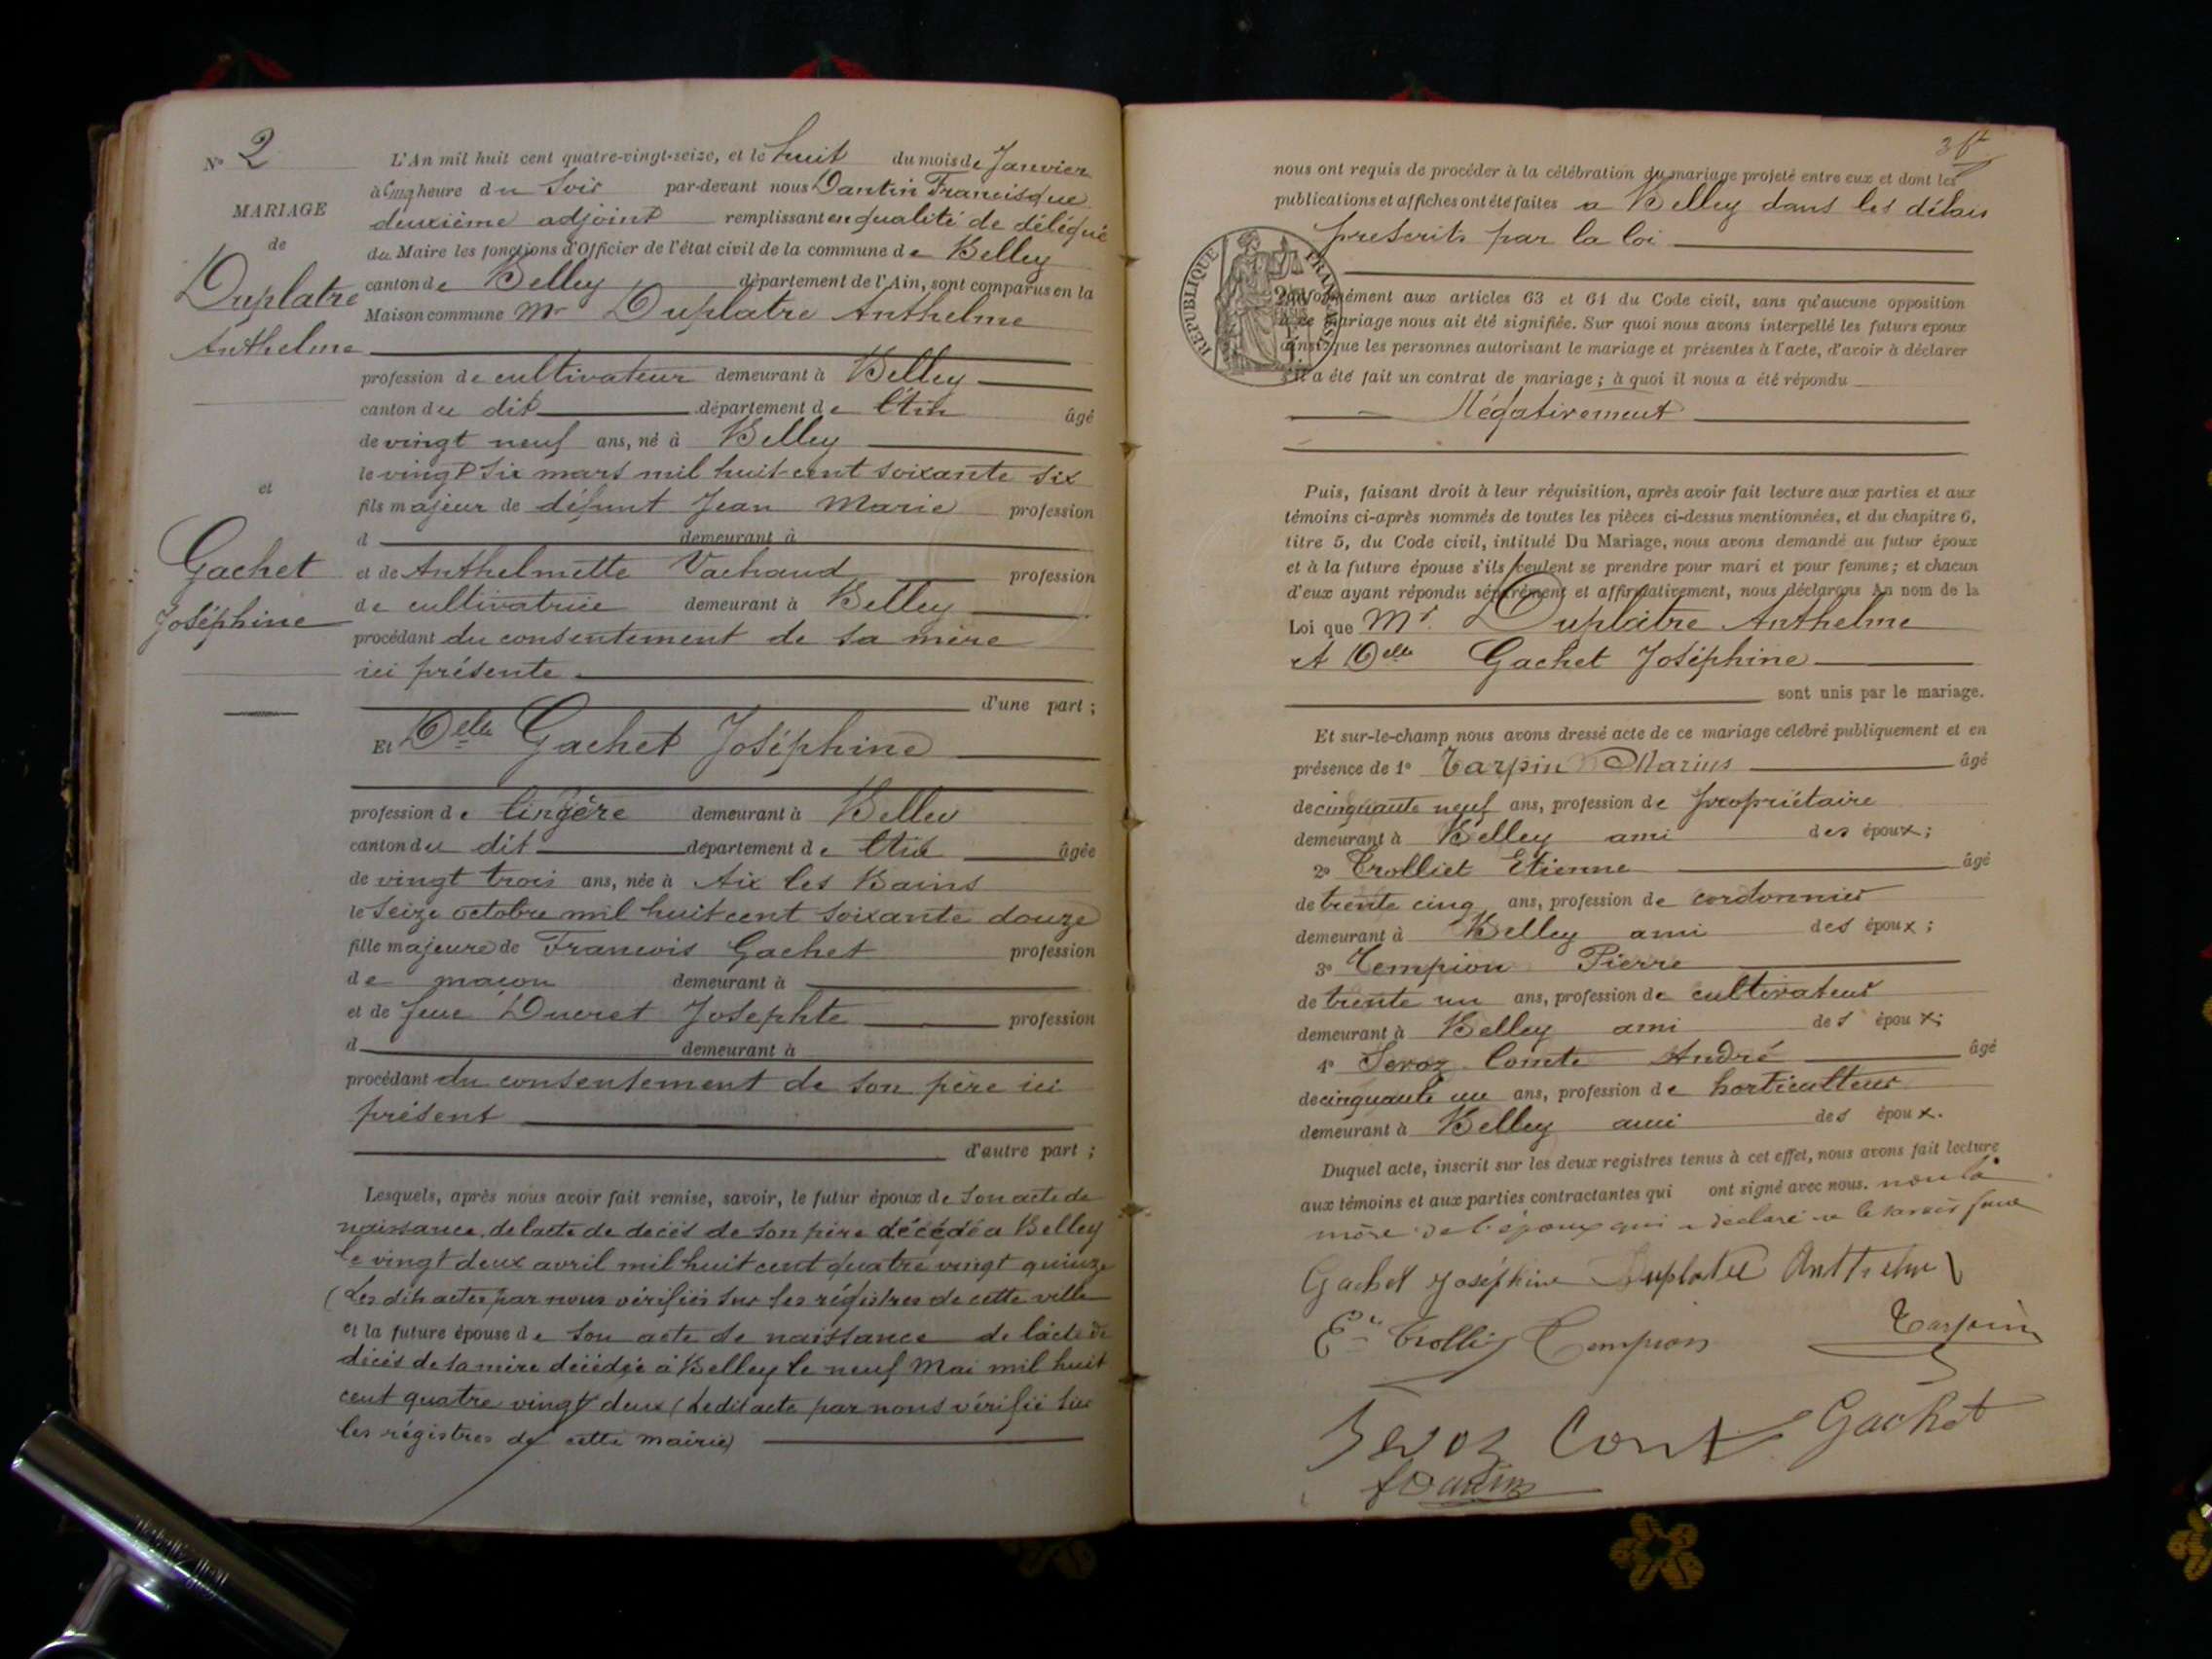 N° 2
MARIAGE
de
Duplatre
Anthelme
et
Gachet
Joséphine
L'An mil huit cent quatre-vingt-seize, et le huit du mois de Janvier
à Cinq heure du Soir par-devant nous Dantin Francisque
deuxième adjoint remplissant en qualité de délégué
du Maire les fonctions d'Officier de l'état civil de la commune de Belley
canton de Belley département de l'Ain, sont comparus en la
Maison commune Mr Duplatre Anthelme
profession de cultivateur demeurant à Belley
canton du dit département de l'Ain âgé
de vingt neuf ans, né à Belley
le vingt six mars mil huit cent soixante six
fils majeur de défunt Jean Marie profession
d demeurant à
et de Anthelmette Vachaud profession
de cultivatrice demeurant à Belley
procédant du consentement de sa mère
ici présente
d'une part ;
Et Delle Gachet Joséphine
profession de lingère demeurant à Belley
canton du dit département de l'Ain âgée
de vingt trois ans, née à Aix les Bains
le seize octobre mil huit cent soixante douze
fille majeure de Francois Gachet profession
de macon demeurant à
et de feue Ducret Josephte profession
d demeurant à
procédant du consentement de son père ici
présent
d'autre part ;
Lesquels, après nous avoir fait remise, savoir, le futur époux de son acte de
naissance, de lacte de décès de son père décédé a Belley
le vingt deux avril mil huit cent quatre vingt quinze
(Les dits actes par nous vérifiés sur les régistres de cette ville
et la future épouse de son acte de naissance de lacte de
décès de sa mère décédée à Belley le neuf Mai mil huit
cent quatre vingt deux (Ledit acte par nous vérifié sur
les régistres de cette mairie)
nous ont requis de procéder à la célébration du mariage projeté entre eux et dont les
publications et affiches ont été faites a Belley dans les délais
prescrits par la loi
RÉPUBLIQUE FRANÇAISE
conformément aux articles 63 et 64 du Code civil, sans qu'aucune opposition
à ce mariage nous ait été signifiée. Sur quoi nous avons interpellé les futurs époux
ainsi que les personnes autorisant le mariage et présentes à l'acte, d'avoir à déclarer
s'il a été fait un contrat de mariage ; à quoi il nous a été répondu
Négativement
Puis, faisant droit à leur réquisition, après avoir fait lecture aux parties et aux
témoins ci-après nommés de toutes les pièces ci-dessus mentionnées, et du chapitre 6,
titre 5, du Code civil, intitulé Du Mariage, nous avons demandé au futur époux
et à la future épouse s'ils veulent se prendre pour mari et pour femme ; et chacun
d'eux ayant répondu séparément et affirmativement, nous déclarons Au nom de la
Loi que Mr. Duplâtre Anthelme
et Delle Gachet Joséphine
sont unis par le mariage.
Et sur-le-champ nous avons dressé acte de ce mariage célébré publiquement et en
présence de 1° Tarpin Marius âgé
de cinquante neuf ans, profession de propriétaire
demeurant à Belley ami des époux ;
2° Trolliet Etienne âgé
de trente cinq ans, profession de cordonnier
demeurant à Belley ami des époux ;
3° Tempion Pierre
de trente un ans, profession de cultivateur
demeurant à Belley ami des époux ;
4° Sevoz Comte André âgé
de cinquante un ans, profession de horticulteur
demeurant à Belley ami des époux.
Duquel acte, inscrit sur les deux registres tenus à cet effet, nous avons fait lecture
aux témoins et aux parties contractantes qui ont signé avec nous. non la
mère de l'époux qui a déclaré ne le savoir faire
Gachet Joséphine Duplatre Anthelme
Tempion Tarpin
Sevoz Gachet
Dantin